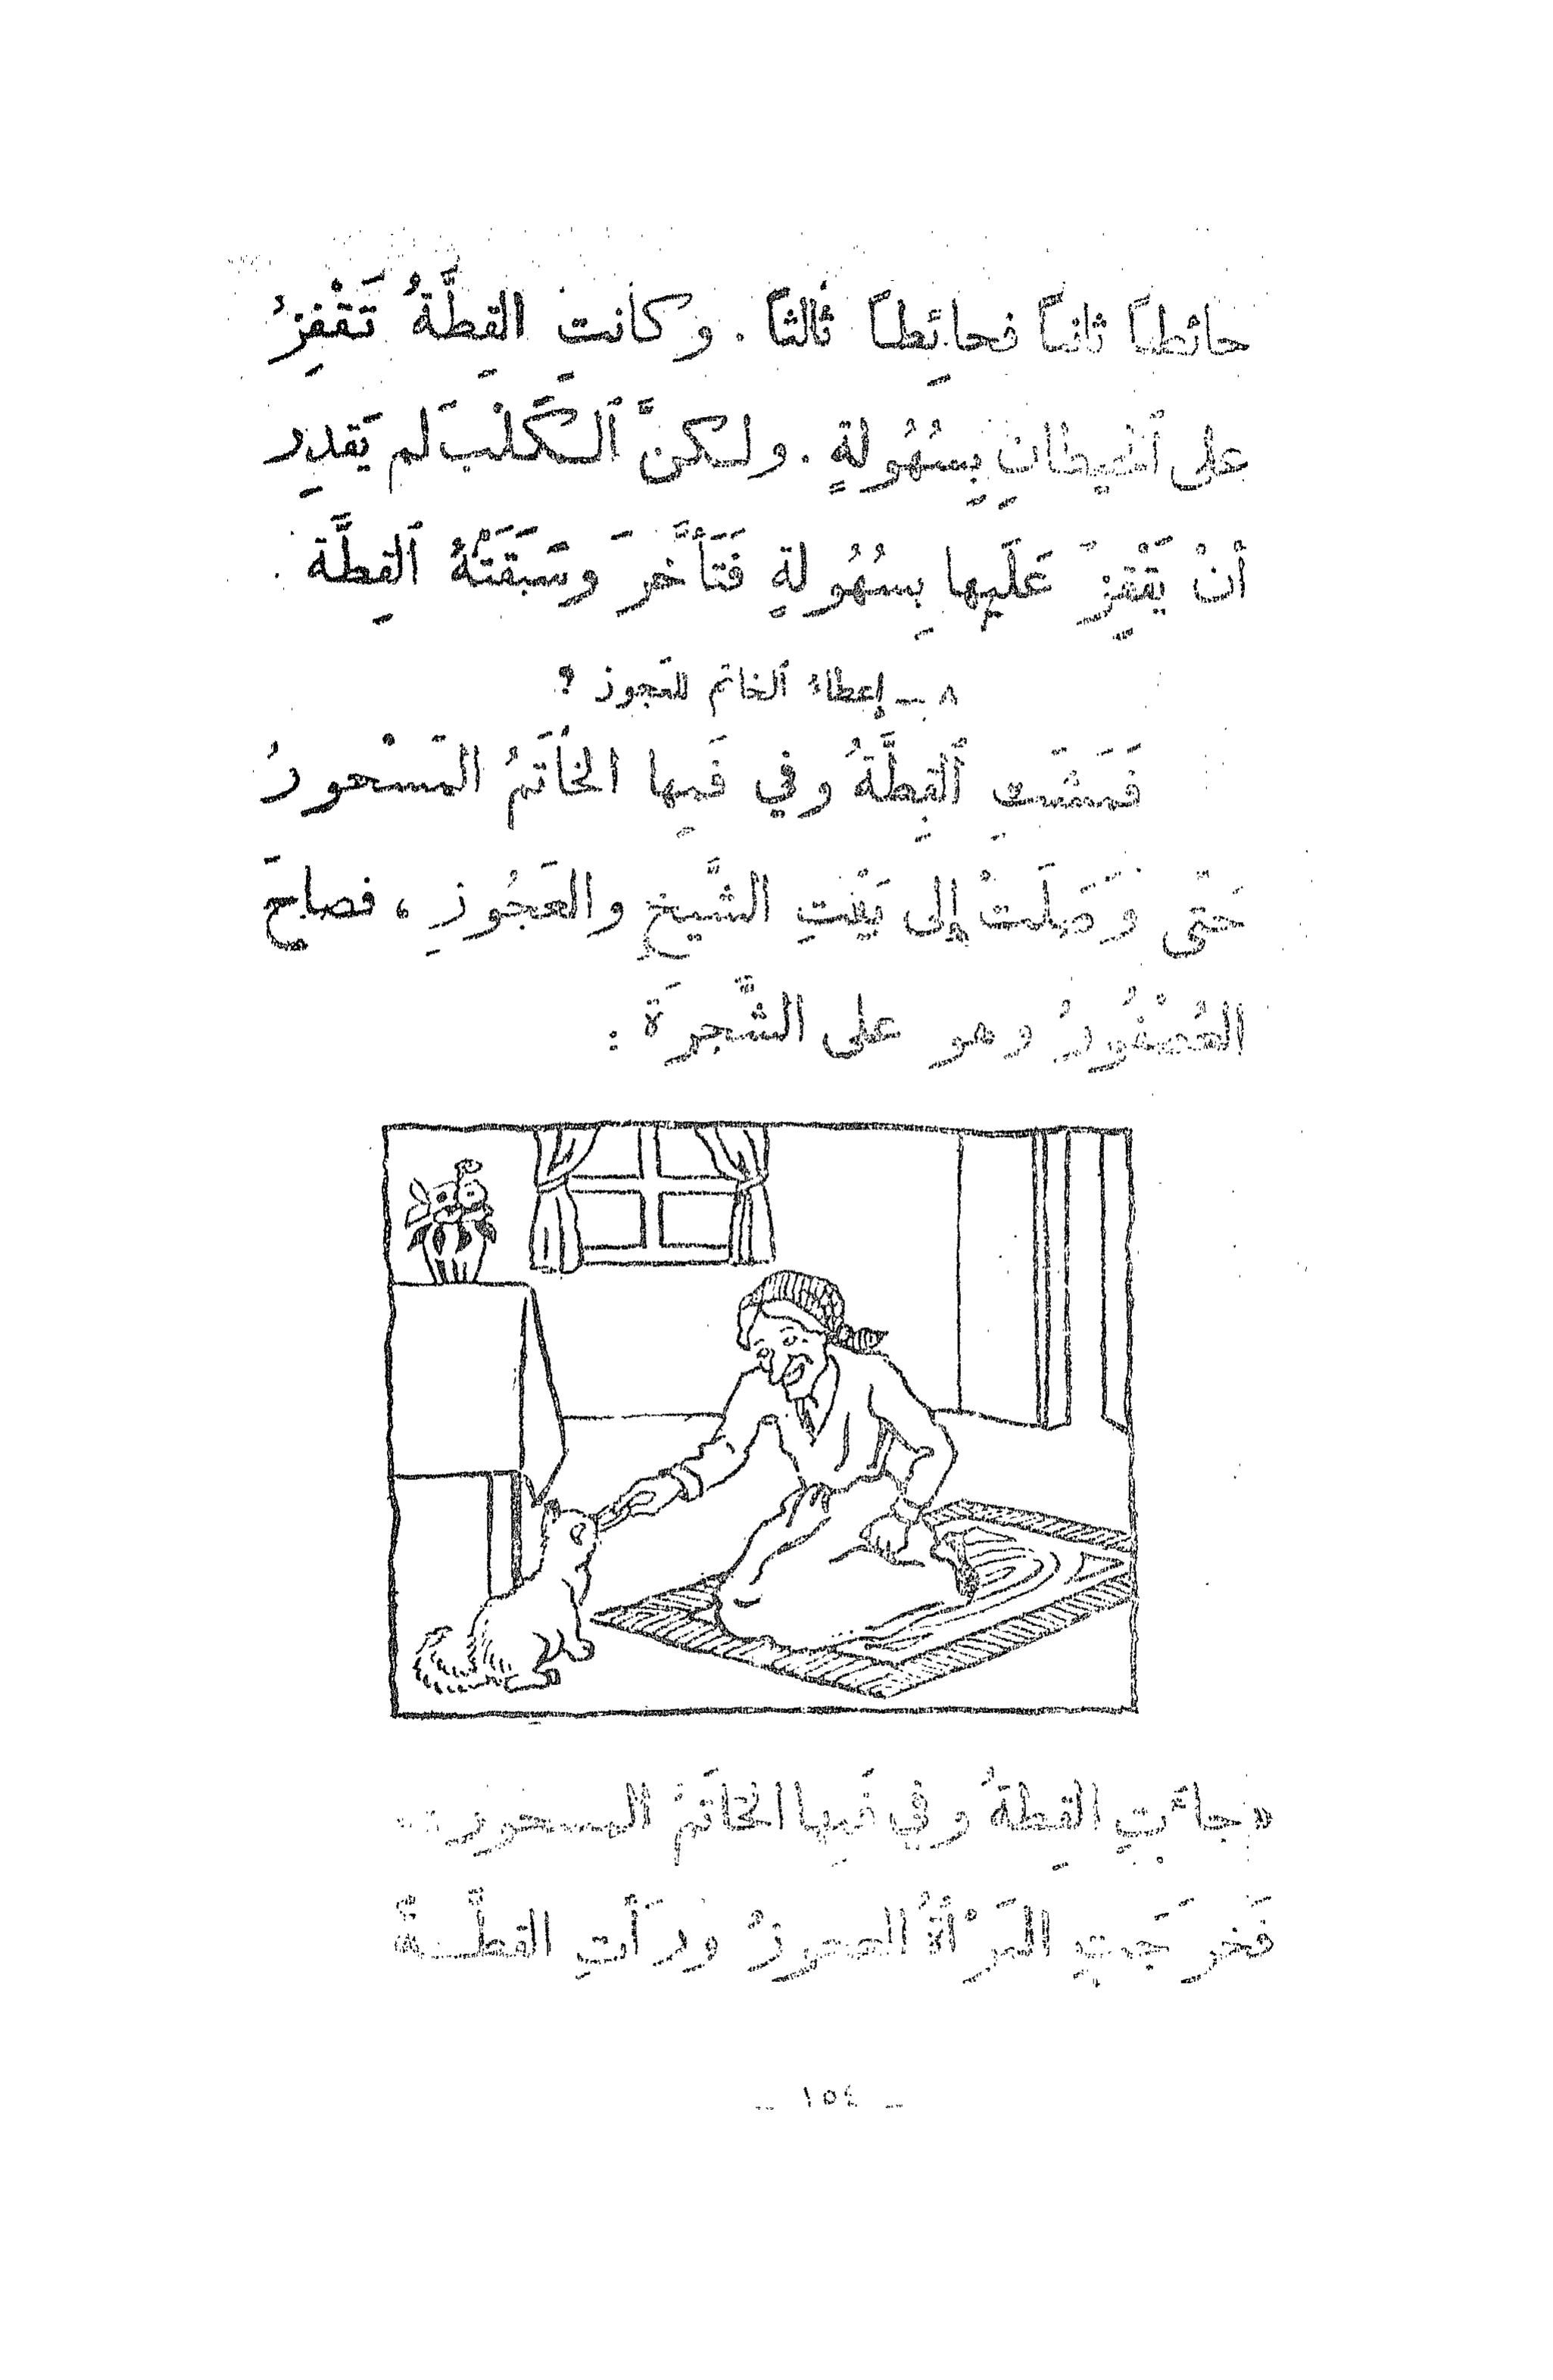 حائطاً ثانياً فحائِطاً ثالثاً . وكانتِ القِطَّةُ تَقْفِزُ
على ٱلحيطانِ بِسُهُولةٍ . ولكنَّ ٱلكَلْبَ لم يَقدِر
أنْ يَقْفِزَ عَلَيها بِسُهُولةٍ فَتَأَخَّرَ وسَبَقَتْهُ ٱلقِطَّة .
٨ — إعطاء ٱلخاتم للعَجوز ؟
فَمَشَتِ ٱلقِطَّةُ وفي فَمِها الخاتَمُ المَسْحورُ
حَتّى وَصَلَتْ إلى بَيْتِ الشَّيخِ والعَجُوزِ ، فصاحَ
العُصْفُورُ وهو على الشَّجرَة :
«جاءَتِ القِطةُ وفي فَمِها الخاتَمُ المسحور»
فَخرَجَتِ المَرْأةُ العجوزُ ورَأتِ القطَّـةَ
– ١٥٤ –